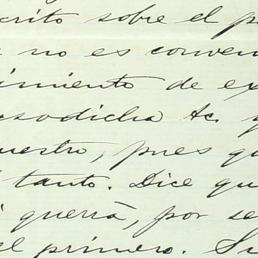 crito sobre el p
no es conven
imiento de ex
sodicha &c. y
uestro, pues qu
tanto. Dice qu
guerra, por se
el primero. Su